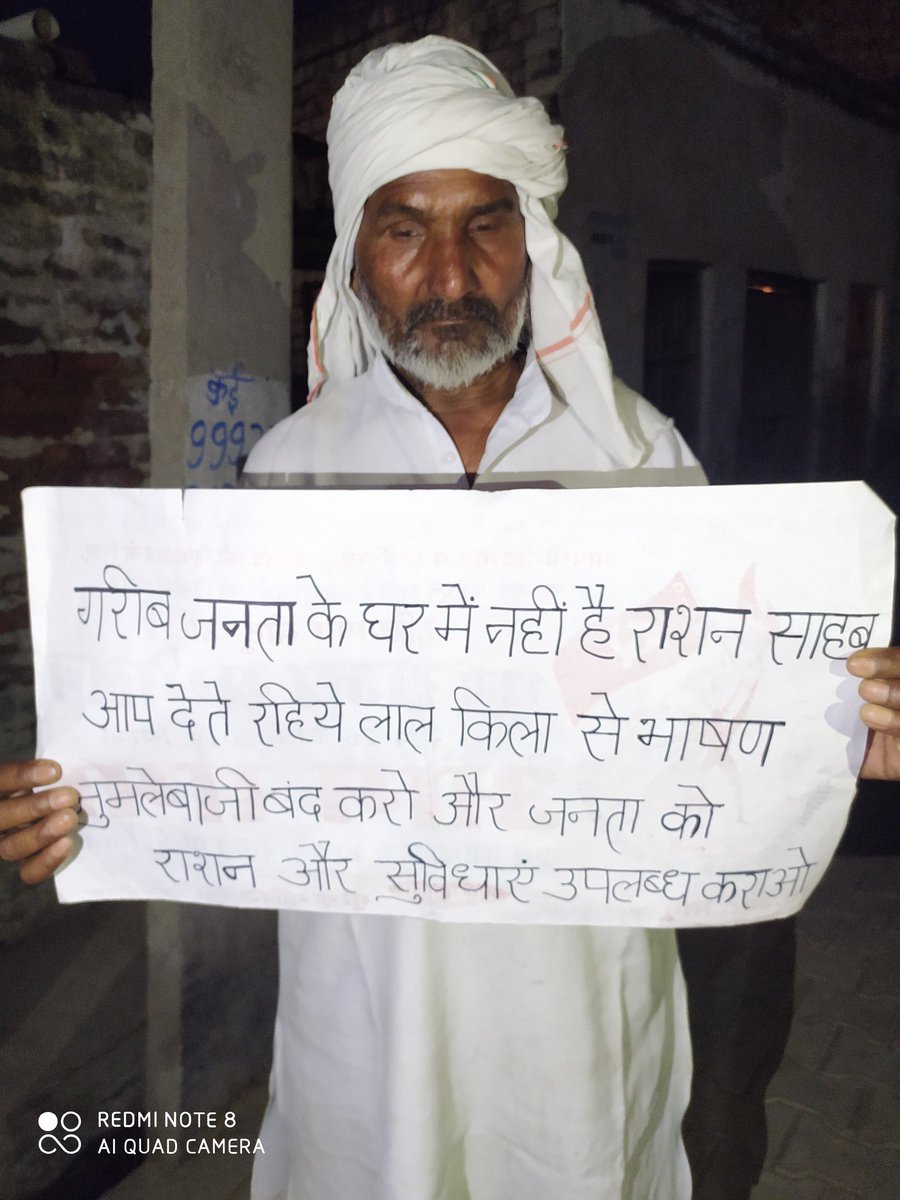 कई
999
गरीब जनता के घर में नहीं है राशन साहब
आप देते रहिये लाल किला से भाषण
जुमलेबाजी बंद करो और जनता को
राशन और सुविधाएं उपलब्ध कराओ
REDMI NOTE 8
AI QUAD CAMERA